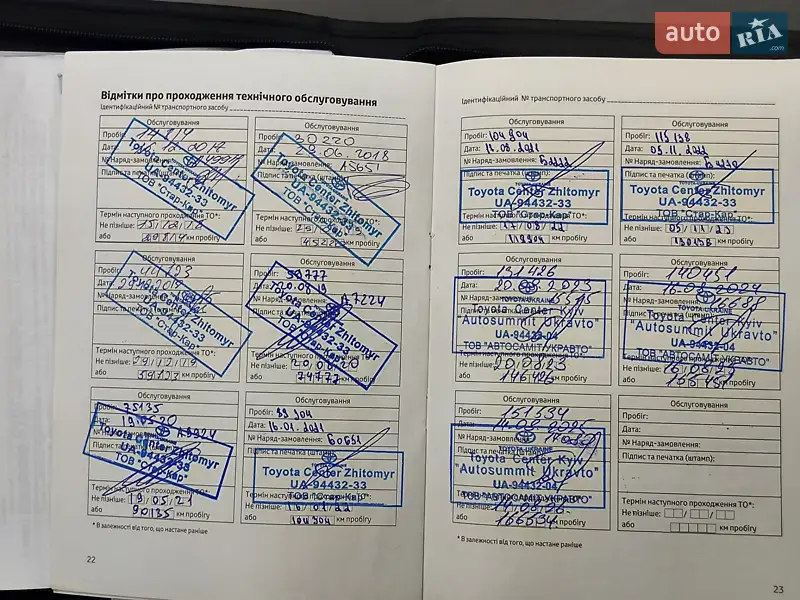 auto RIA .com
Відмітки про проходження технічного обслуговування
Ідентифікаційний № транспортного засобу
Обслуговування
Пробіг:
Дата:
№ Наряд-замовлення:
Підпис та печатка (штамп)
Toyota Center Zhitomyr
UA-94432-33
ТОВ "Стар-Кар"
Термін наступного проходження ТО*:
Не пізніше: 15/12/18
або 29814 км пробігу
Обслуговування
Пробіг: 30220
Дата: 29.06.2018
№ Наряд-замовлення: А5651
Підпис та печатка (штамп)
Toyota Center Zhitomyr
UA-94432-33
ТОВ "Стар-Кар"
Термін наступного проходження ТО*:
Не пізніше:
або 45220 км пробігу
Обслуговування
Пробіг: 44123
Дата:
№ Наряд-замовлення:
Підпис та печатка
UA-94432-33
ТОВ "Стар-Кар"
Термін наступного проходження ТО*:
Не пізніше:
або 59123 км пробігу
Обслуговування
Пробіг: 59777
Дата: 20.08.19
№ Наряд-замовлення: А7224
Toyota Center Zhitomyr
UA-94432-33
ТОВ "Стар-Кар"
Не пізніше: 20/08/20
або 74777 км пробігу
Обслуговування
Пробіг: 75135
Дата: 19.05.20
А8924
Підпис та
Toyota Center Zhitomyr
UA-94432-33
ТОВ "Стар-Кар"
Термін наступного проходження ТО*:
Не пізніше: 19/05/21
або 90135 км пробігу
Обслуговування
Пробіг: 89304
Дата: 16.01.2021
№ Наряд-замовлення: Б0651
Підпис та печатка (штамп):
Toyota Center Zhitomyr
UA-94432-33
ТОВ "Стар-Кар"
Термін наступного проходження ТО*:
Не пізніше: 16/01/22
або 104304 км пробігу
* В залежності від того, що настане раніше
22
Ідентифікаційний № транспортного засобу
Обслуговування
Пробіг: 104904
Дата:
№ Наряд-замовлення:
Підпис та печатка (штамп):
Toyota Center Zhitomyr
UA-94432-33
ТОВ "Стар-Кар"
Термін наступного проходження ТО*:
Не пізніше: 17/08/22
або 119904 км пробігу
Обслуговування
Пробіг: 115138
Дата:
№ Наряд-замовлення:
Підпис та печатка (штамп):
Toyota Center Zhitomyr
UA-94432-33
ТОВ "Стар-Кар"
Термін наступного проходження ТО*:
Не пізніше: 05/11/23
або 130138 км пробігу
Обслуговування
Пробіг: 131426
Дата:
№ Наряд-замовлення:
Підпис та печатка (штамп):
TOYOTA-UKRAINE
Toyota Center Kyiv
"Autosummit Ukravto"
UA-94432-04
ТОВ "АВТОСАМІТ УКРАВТО"
Термін наступного
Не пізніше: 20/08/23
або 146426 км пробігу
Обслуговування
Пробіг: 140451
Дата: 16.08.2024
№ Наряд-замовлення: 16688
Підпис та печатка
TOYOTA-UKRAINE
Toyota Center Kyiv
"Autosummit Ukravto"
UA-94432-04
ТОВ "АВТОСАМІТ УКРАВТО"
Термін наступного
Не пізніше: 16/08/25
або 155451 км пробігу
Обслуговування
Пробіг: 151534
Дата: 14.08.2025
№ Наряд-замовлення:
Підпис та
Toyota Center Kyiv
"Autosummit Ukravto"
UA-94432-04
ТОВ "АВТОСАМІТ УКРАВТО"
Не пізніше: 14/08/26
або 166534 км пробігу
Обслуговування
Пробіг:
Дата:
№ Наряд-замовлення:
Підпис та печатка (штамп):
Термін наступного проходження ТО*:
Не пізніше:
або км пробігу
* В залежності від того, що настане раніше
23